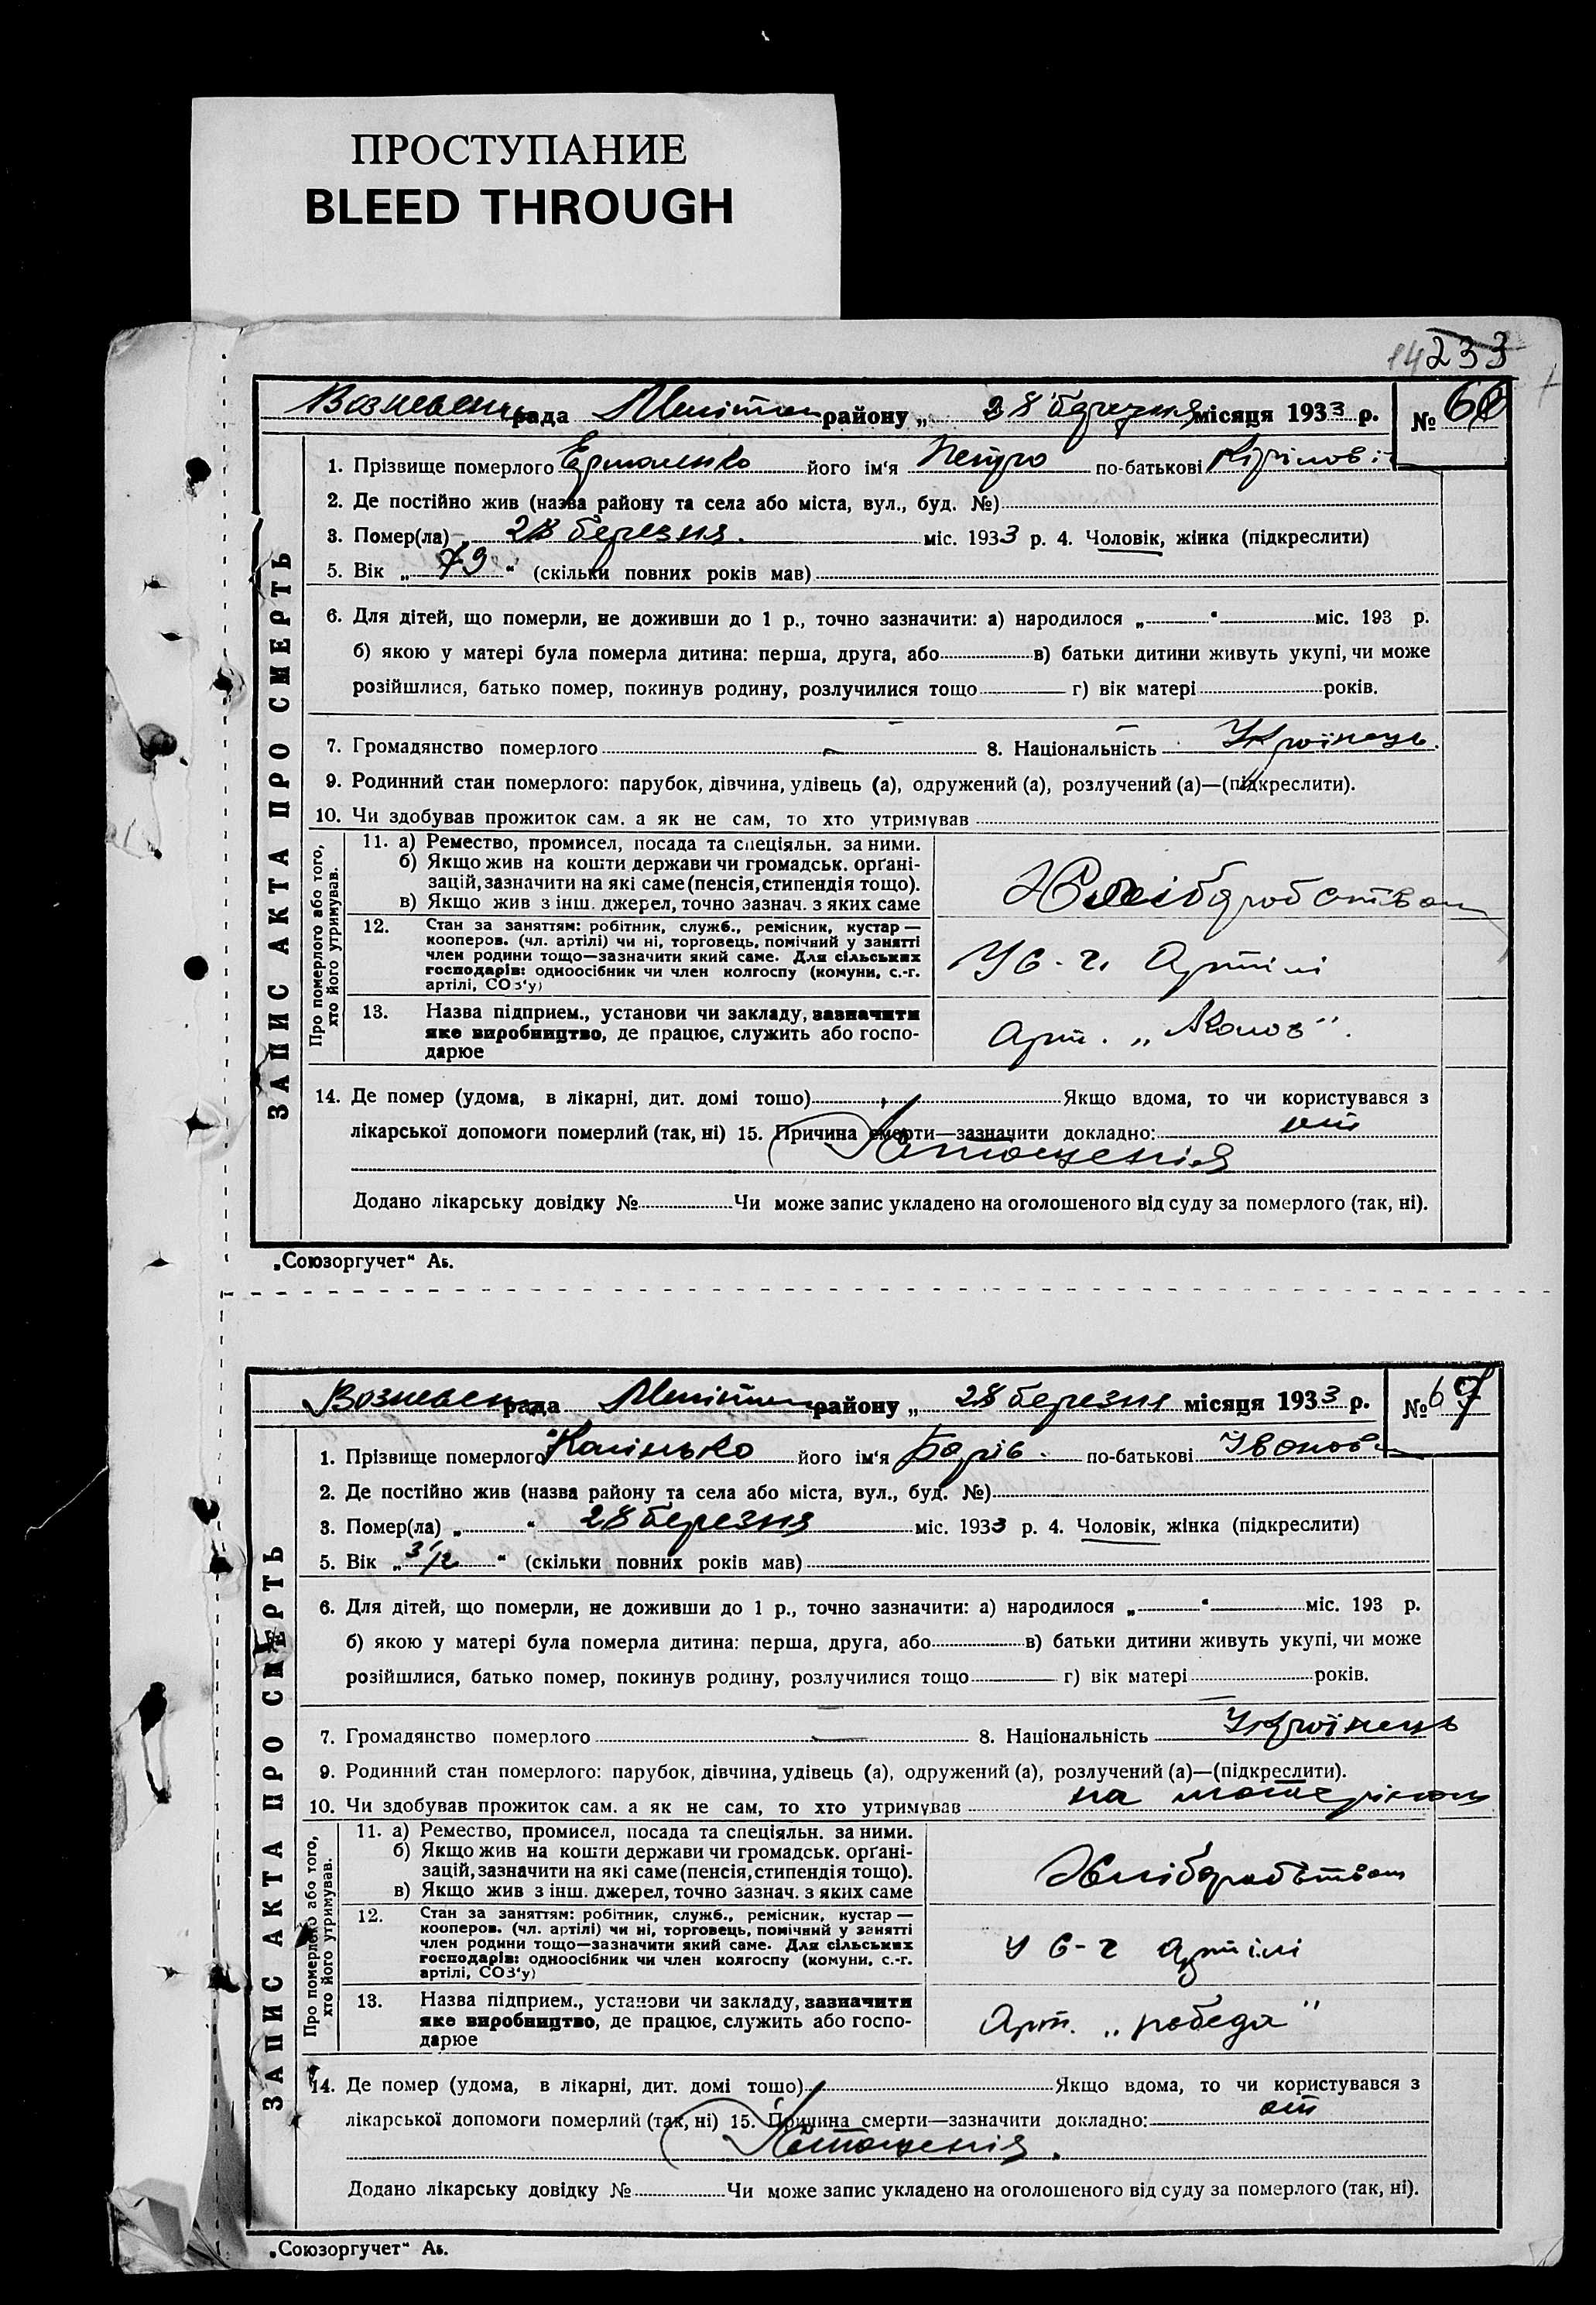 ПРОСТУПАНИЕ
BLEED THROUGH
14 233
рада району „ 28 березня місяця 1933 р. № 66
1. Прізвище померлого Ермоленко його ім'я Петро по-батькові Кірілові
2. Де постійно жив (назва району та села або міста, вул., буд. №)
3. Помер(ла) „ 28 березня. міс. 1933 р. 4. Чоловік, жінка (підкреслити)
5. Вік „ 79 “ (скільки повних років мав)
6. Для дітей, що померли, не доживши до 1 р., точно зазначити: а) народилося „ “ міс. 193 р.
б) якою у матері була померла дитина: перша, друга, або в) батьки дитини живуть укупі, чи може
розійшлися, батько помер, покинув родину, розлучилися тощо г) вік матері років.
7. Громадянство померлого 8. Національність Українець
9. Родинний стан померлого: парубок, дівчина, удівець (а), одружений (а), розлучений (а)—(підкреслити).
10. Чи здобував прожиток сам. а як не сам, то хто утримував
ЗАПИС АКТА ПРО СМЕРТЬ
Про померлого або того,
хто його утримував.
11. а) Ремество, промисел, посада та спеціяльн. за ними.
б) Якщо жив на кошти держави чи громадськ. орґані-
зацій, зазначити на які саме (пенсія, стипендія тощо).
в) Якщо жив з інш. джерел, точно зазнач. з яких саме
Хліборобством
12. Стан за заняттям: робітник, служб., ремісник, кустар —
кооперов. (чл. артілі) чи ні, торговець, помічний у занятті
член родини тощо—зазначити який саме. Для сільських
господарів: одноосібник чи член колгоспу (комуни, с.-г.
артілі, СОЗ'у)
У с-г. Артілі
13. Назва підприєм., установи чи закладу, зазначити
яке виробництво, де працює, служить або госпо-
дарює
Арт.
14. Де помер (удома, в лікарні, дит. домі тошо) Якщо вдома, то чи користувався з
лікарської допомоги померлий (так, ні) 15. Причина смерти—зазначити докладно: от
істощенія
Додано лікарську довідку № Чи може запис укладено на оголошеного від суду за померлого (так, ні).
„Союзоргучет“ Аь.
рада району „ 28 березня місяця 1933 р. № 67
1. Прізвище померлого Калінько його ім'я Боріс по-батькові Іванов
2. Де постійно жив (назва району та села або міста, вул., буд. №)
3. Помер(ла) „ “ 28 березня міс. 1933 р. 4. Чоловік, жінка (підкреслити)
5. Вік „ 3/12 “ (скільки повних років мав)
6. Для дітей, що померли, не доживши до 1 р., точно зазначити: а) народилося „ “ міс. 193 р.
б) якою у матері була померла дитина: перша, друга, або в) батьки дитини живуть укупі, чи може
розійшлися, батько помер, покинув родину, розлучилися тощо г) вік матері років.
7. Громадянство померлого 8. Національність Українець
9. Родинний стан померлого: парубок, дівчина, удівець (а), одружений (а), розлучений (а)—(підкреслити).
10. Чи здобував прожиток сам. а як не сам, то хто утримував на
ЗАПИС АКТА ПРО СМЕРТЬ
Про померлого або того,
хто його утримував.
11. а) Ремество, промисел, посада та спеціяльн. за ними.
б) Якщо жив на кошти держави чи громадськ. орґані-
зацій, зазначити на які саме (пенсія, стипендія тощо).
в) Якщо жив з інш. джерел, точно зазнач. з яких саме
Хліборобством
12. Стан за заняттям: робітник, служб., ремісник, кустар —
кооперов. (чл. артілі) чи ні, торговець, помічний у занятті
член родини тощо—зазначити який саме. Для сільських
господарів: одноосібник чи член колгоспу (комуни, с.-г.
артілі, СОЗ'у)
у с-г артілі
13. Назва підприєм., установи чи закладу, зазначити
яке виробництво, де працює, служить або госпо-
дарює
Арт. „победа“
14. Де помер (удома, в лікарні, дит. домі тошо) Якщо вдома, то чи користувався з
лікарської допомоги померлий (так, ні) 15. Причина смерти—зазначити докладно: от
істощенія.
Додано лікарську довідку № Чи може запис укладено на оголошеного від суду за померлого (так, ні).
„Союзоргучет“ Аь.